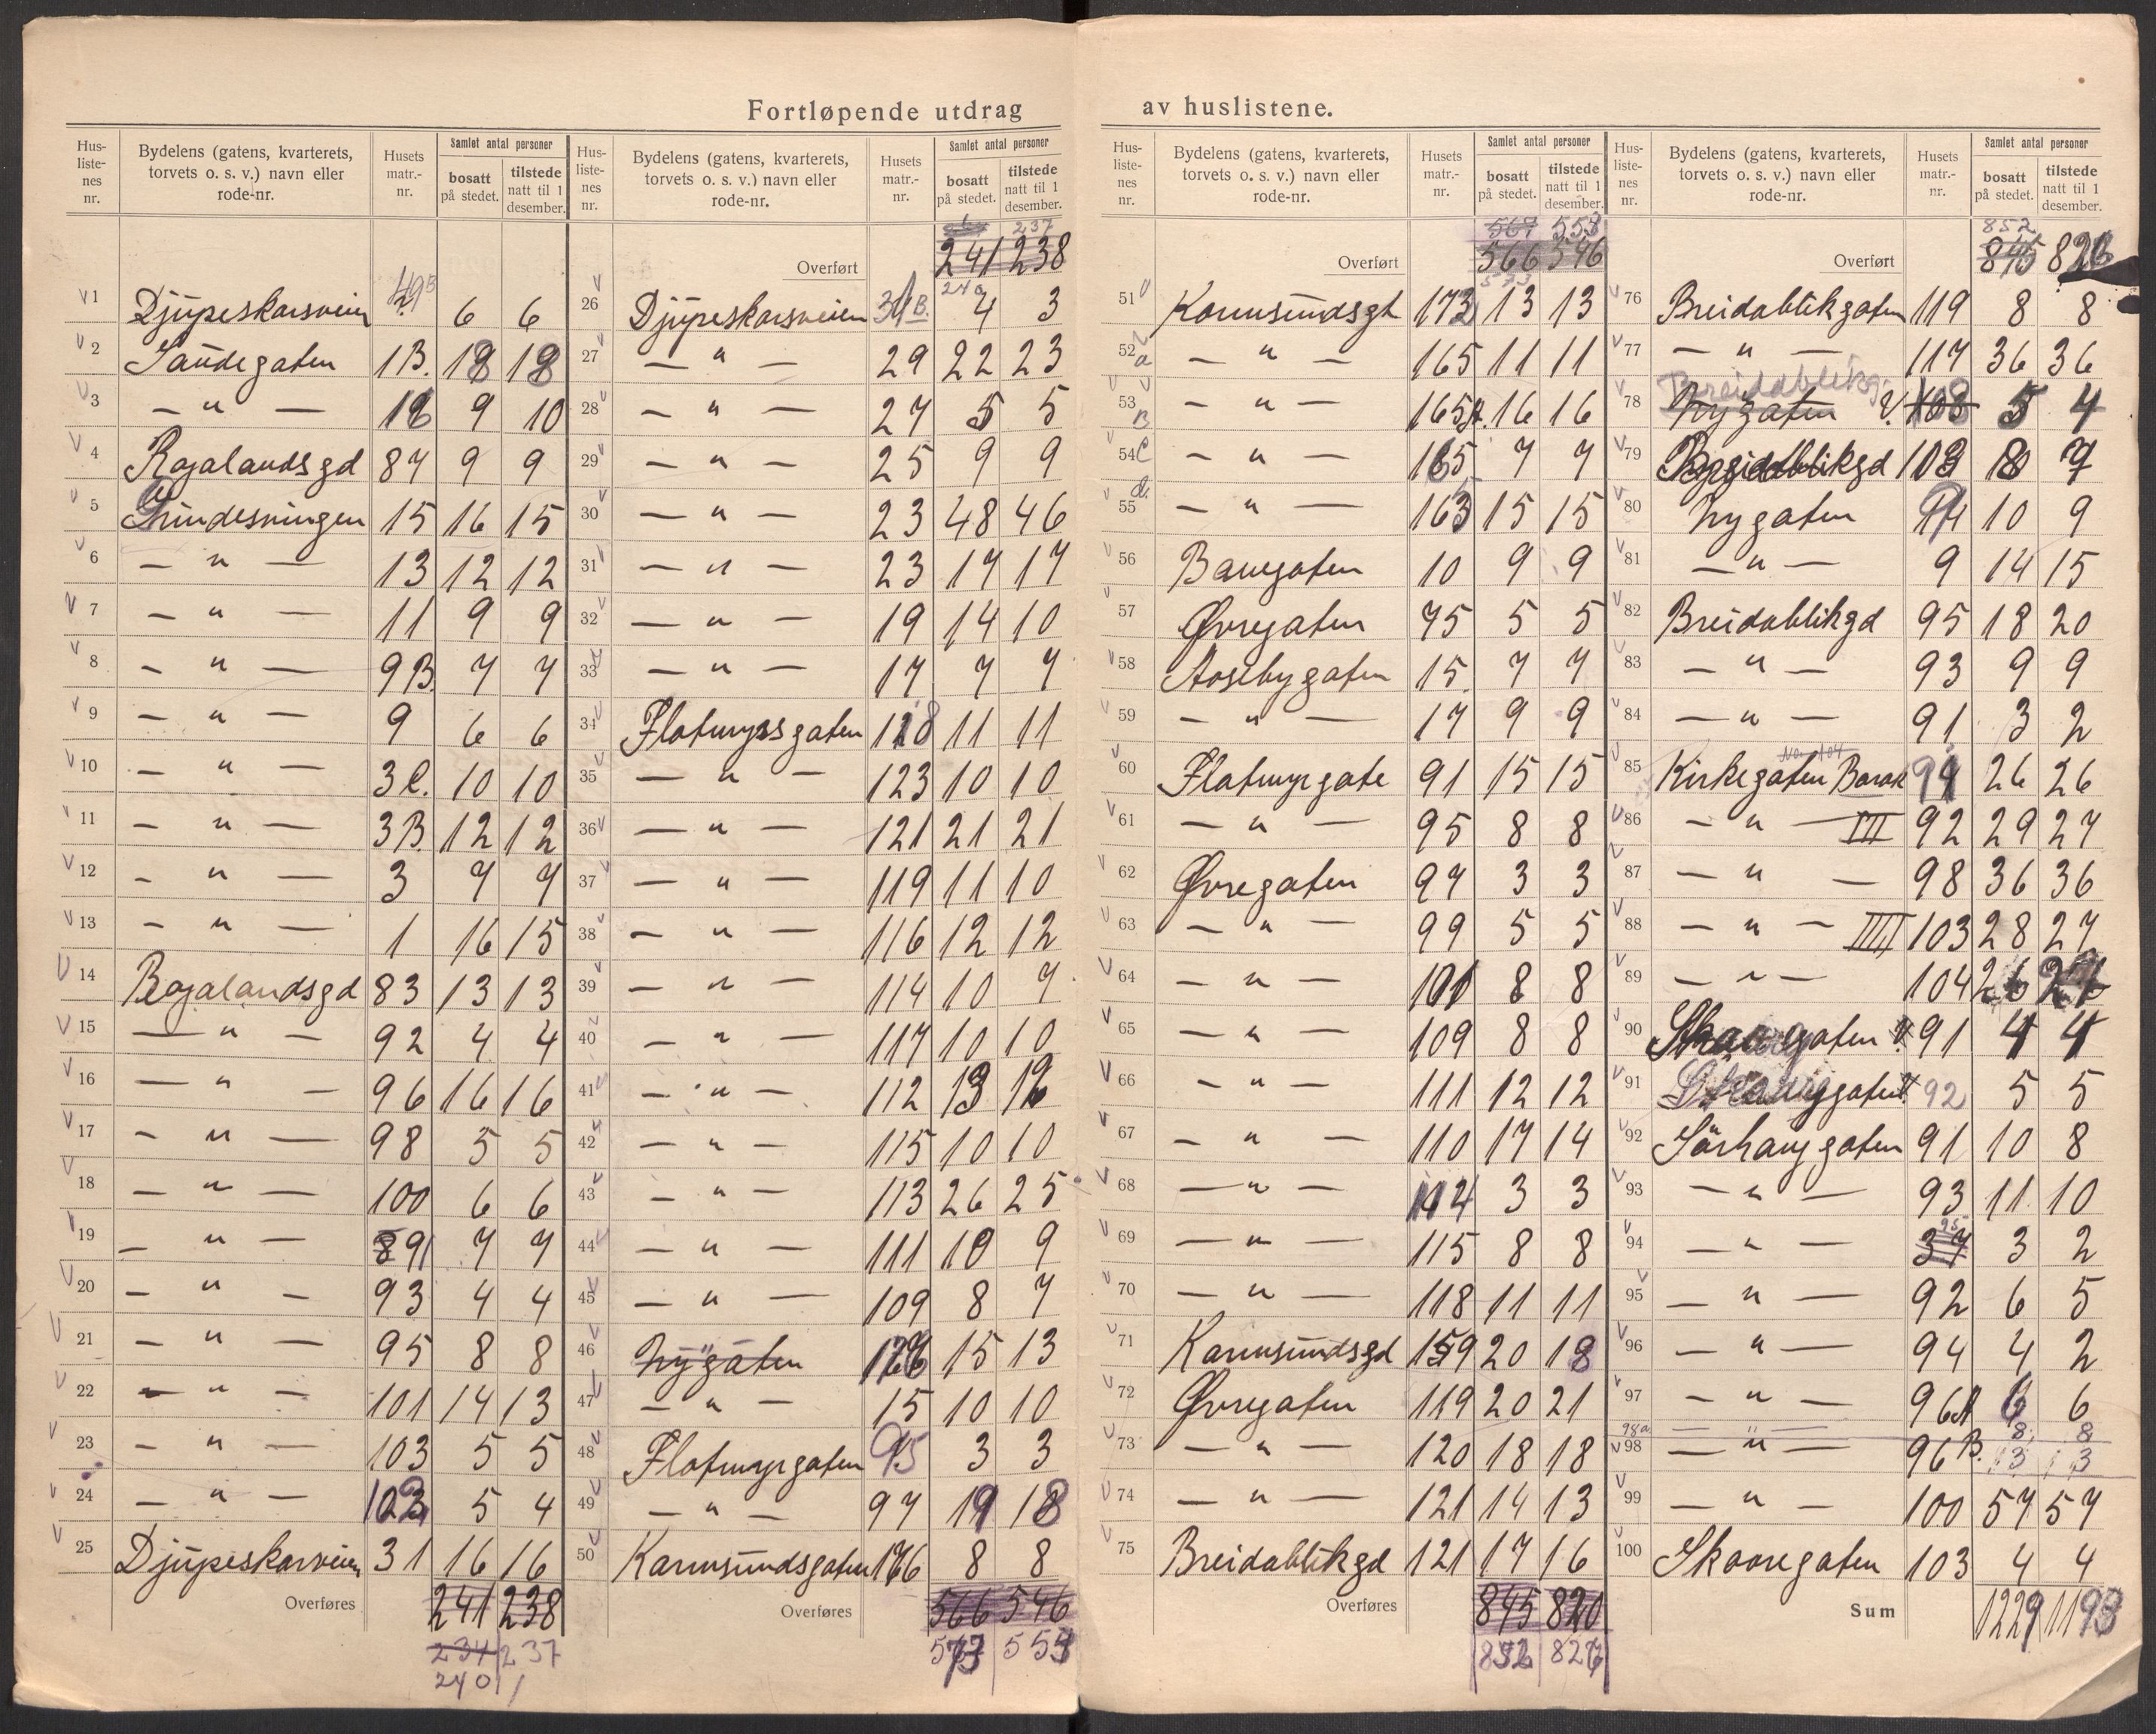 Fortløpende utdrag av huslistene.
Hus-listenes nr. | Bydelens (gatens, kvarterets, torvets o. s. v.) navn eller rode-nr. | Husets matr.-nr. | Samlet antal personer | bosatt på stedet. | tilstede natt til 1 desember.
1 Djüpeskarsveien 6 6
2 Saudegaten 1B. 18 18
3 — " — 9 10
4 Rogalandsgd 87 9 9
5 15 16 15
6 — " — 13 12 12
7 — " — 11 9 9
8 — " — 9B. 7 7
9 — " — 9 6 6
10 — " — 3C. 10 10
11 — " — 3B. 12 12
12 — " — 3 7 7
13 — " — 1 16 15
14 Rogalandsgd 83 13 13
15 — " — 92 4 4
16 — " — 96 16 16
17 — " — 98 5 5
18 — " — 100 6 6
19 — " — 91 7 7
20 — " — 93 4 4
21 — " — 95 8 8
22 — " — 101 14 13
23 — " — 103 5 5
24 — " — 5 4
25 Djüpeskarveien 31 16 16
Overføres 241 238
234 237
240
Hus-listenes nr. | Bydelens (gatens, kvarterets, torvets o. s. v.) navn eller rode-nr. | Husets matr.-nr. | Samlet antal personer | bosatt på stedet. | tilstede natt til 1 desember.
237
Overført 241 238
240
26 Djüpeskarsveien 4 3
27 — " — 29 22 23
28 — " — 27 5 5
29 — " — 25 9 9
30 — " — 23 48 46
31 — " — 23 17 17
32 — " — 19 14 10
33 — " — 17 7 7
34 Flotmyrsgaten 118 11 11
35 — " — 123 10 10
36 — " — 121 21 21
37 — " — 119 11 10
38 — " — 116 12 12
39 — " — 114 10 7
40 — " — 117 10 10
41 — " — 112 13
42 — " — 115 10 10
43 — " — 113 26 25
44 — " — 111 10 9
45 — " — 109 8 7
46 Nygaten 15 13
47 — " — 15 10 10
48 Flotmyrgaten 95 3 3
49 — " — 97 19 18
50 Karmsundsgaten 166 8 8
Overføres 566 546
573 553
Hus-listenes nr. | Bydelens (gatens, kvarterets, torvets o. s. v.) navn eller rode-nr. | Husets matr.-nr. | Samlet antal personer | bosatt på stedet. | tilstede natt til 1 desember.
567 553
Overført 566 546
573
51 Karmsundsgt 173 13 13
52 a — " — 165 11 11
53 B — " — 165A. 16 16
54 C — " — 165 7 7
55 d. — " — 15 15
56 Banegaten 10 9 9
57 Øvregaten 75 5 5
58 Aasebygaten 15. 7 7
59 — " — 17 9 9
60 Flotmyrgate 91 15 15
61 — " — 95 8 8
62 Øvregaten 97 3 3
63 — " — 99 5 5
64 — " — 101 8 8
65 — " — 109 8 8
66 — " — 111 12 12
67 — " — 110 17 14
68 — " — 3 3
69 — " — 115 8 8
70 — " — 118 11 11
71 Karmsundsgd 159 20 18
72 Øvregaten 119 20 21
73 — " — 120 18 18
74 — " — 121 14 13
75 Breidablikgd 121 17 16
Overføres 845 820
852 826
Hus-listenes nr. | Bydelens (gatens, kvarterets, torvets o. s. v.) navn eller rode-nr. | Husets matr.-nr. | Samlet antal personer | bosatt på stedet. | tilstede natt til 1 desember.
852
Overført 845 826
76 Breidablikgaten 119 8 8
77 — " — 117 36 36
Breidablikg.
78 Nygaten 108 5 4
79 Breidablikgd 103 8 7
80 Nygaten 10 9
81 — " — 9 14 15
82 Breidablikgd 95 18 20
83 — " — 93 9 9
84 — " — 91 3 2
85 Kirkegaten Barak 26 26
86 — " — III 92 29 27
87 — " — 98 36 36
88 — " — IIII 103 28 27
89 — " — 104 26
90 Skaaregaten 91 4 4
91 92 5 5
92 Sørhauggaten 91 10 8
93 — " — 93 11 10
95
94 — " — 37 3 2
95 — " — 92 6 5
96 — " — 94 4 2
97 — " — 96A 6 6
98a — " — 8 8
98 — " — 96B. 13 13
99 — " — 100 57 57
100 Skaaregaten 103 4 4
Sum 1229 1193